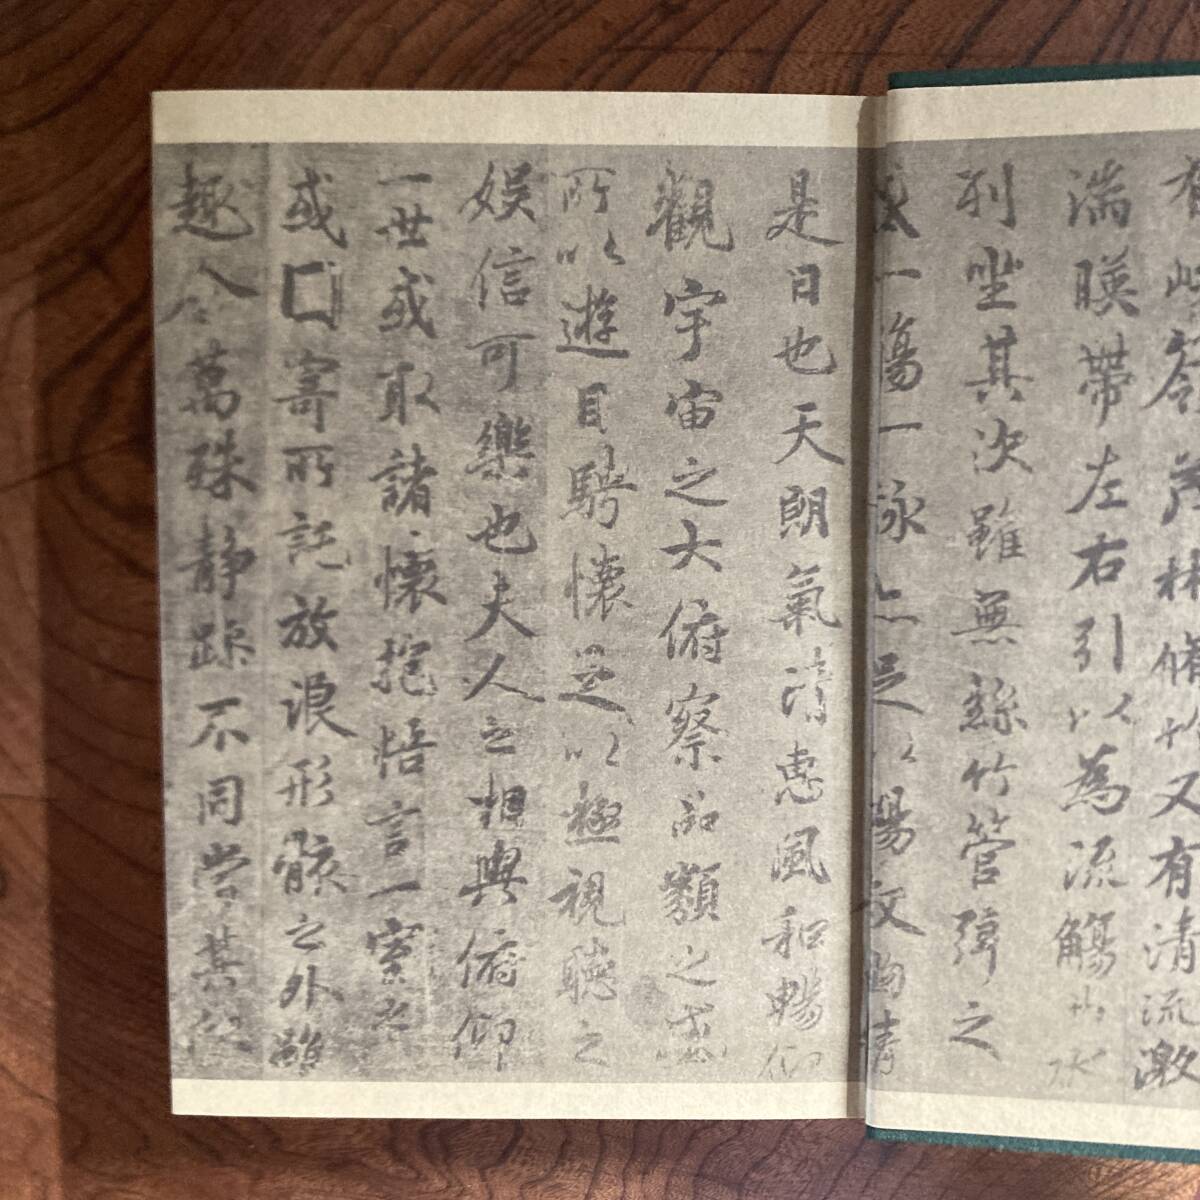 有峻領茂林脩竹又有清流激
湍暎帶左右引以為流觴曲水
列坐其次雖無絲竹管弦之
盛一觴一詠亦足以暢敘幽情
是日也天朗氣清惠風和暢仰
觀宇宙之大俯察品類之盛
所以遊目騁懷足以極視聽之
娛信可樂也夫人之相與俯仰
一世或取諸懷抱悟言一室之
或寄所託放浪形骸之外雖
趣舍萬殊靜躁不同當其欣